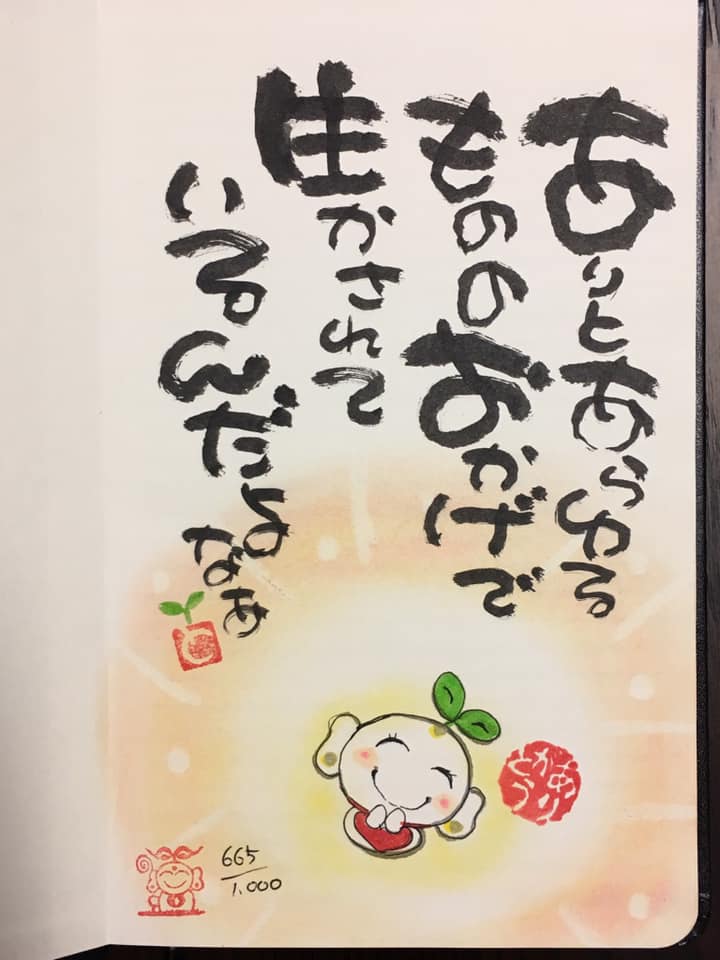 ありとあらゆる
もののおかげで
生かされて
いるんだよ
なぁ
665
1.000